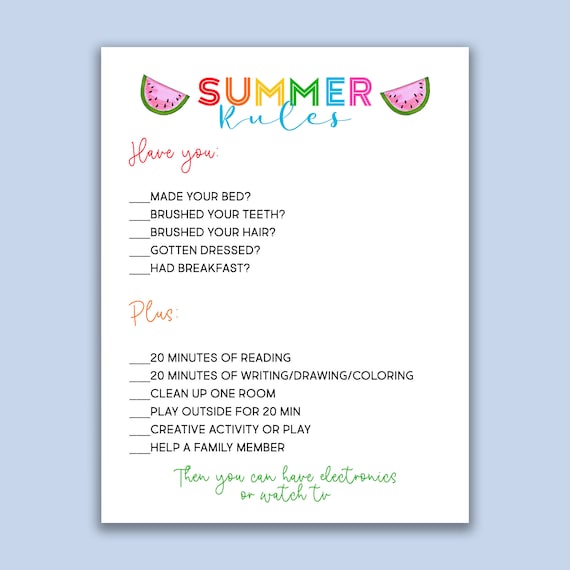 SUMMER
Rules
Have you:
___MADE YOUR BED?
___BRUSHED YOUR TEETH?
___BRUSHED YOUR HAIR?
___GOTTEN DRESSED?
___HAD BREAKFAST?
Plus:
___20 MINUTES OF READING
___20 MINUTES OF WRITING/DRAWING/COLORING
___CLEAN UP ONE ROOM
___PLAY OUTSIDE FOR 20 MIN
___CREATIVE ACTIVITY OR PLAY
___HELP A FAMILY MEMBER
Then you can have electronics
or watch tv